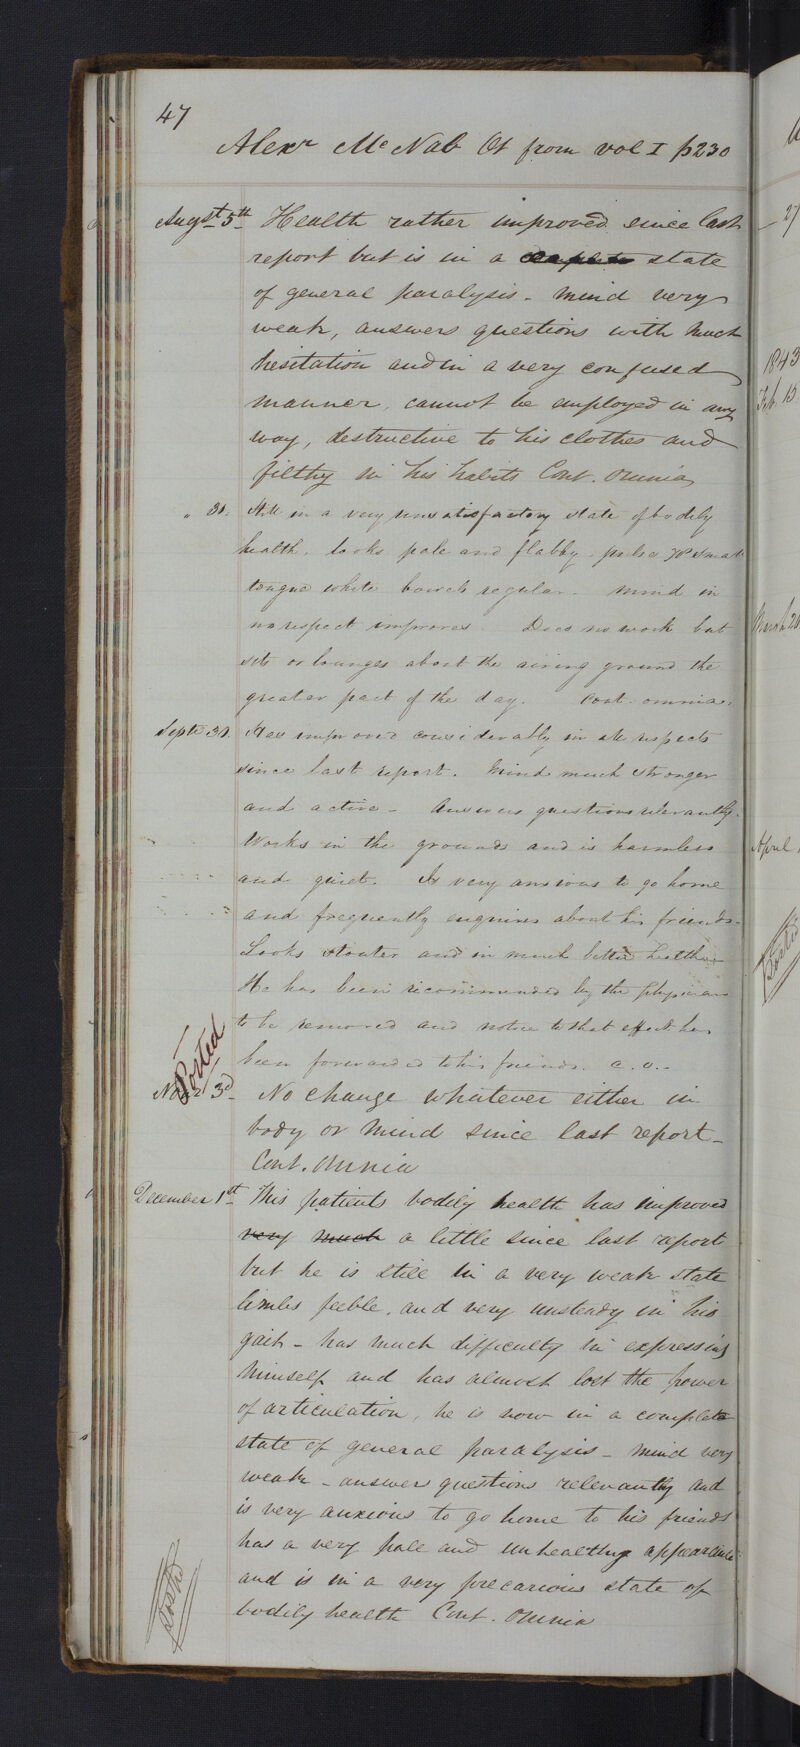 47
Alexr McNab Ct from vol I p230
Augst 5th Health rather improved since last
report but is in a complete state
of general paralysis - mind very
weak, answers questions with much
hesitation and in a very confused
manner, cannot be employed in any
way, destructive to his clothes and
filthy in his habits Cont. Omnia
" 30. Still in a very unsatisfactory state of bodily
health. looks pale and flabby. pulse 78 small
tongue white bowels regular. Mind in
no respect improves. Does no work but
sits or lounges about the airing ground the
greater part of the day. Cont. omnia.
Septr 30. Has improved considerably in all respects
since last report. Mind much stronger
and active - Answers questions relevantly.
Works in the grounds and is harmless
and quiet. Is very anxious to go home
and frequently enquires about his friends.
Looks stouter and in much better health.
He has been recommended by the physicians
to be removed and notice to that effect has
been forwarded to his friends. C.O.
Posted
Novr 3d No change whatever either in
body or mind since last report -
Cont. Omnia
December 1st This patients bodily health has improved
very much a little since last report
but he is still in a very weak state
limbs feeble, and very unsteady in his
gait - has much difficulty in expressing
himself and has almost lost the power
of articulation, he is now in a complete
state of general paralysis - mind very
weak - answers questions relevantly and
is very anxious to go home to his friends
has a very pale and unhealthy appearance
and is in a very precarious state of
bodily health Cont. Omnia
Posted
27
1843
Feb. 15
March 20
April
Posted